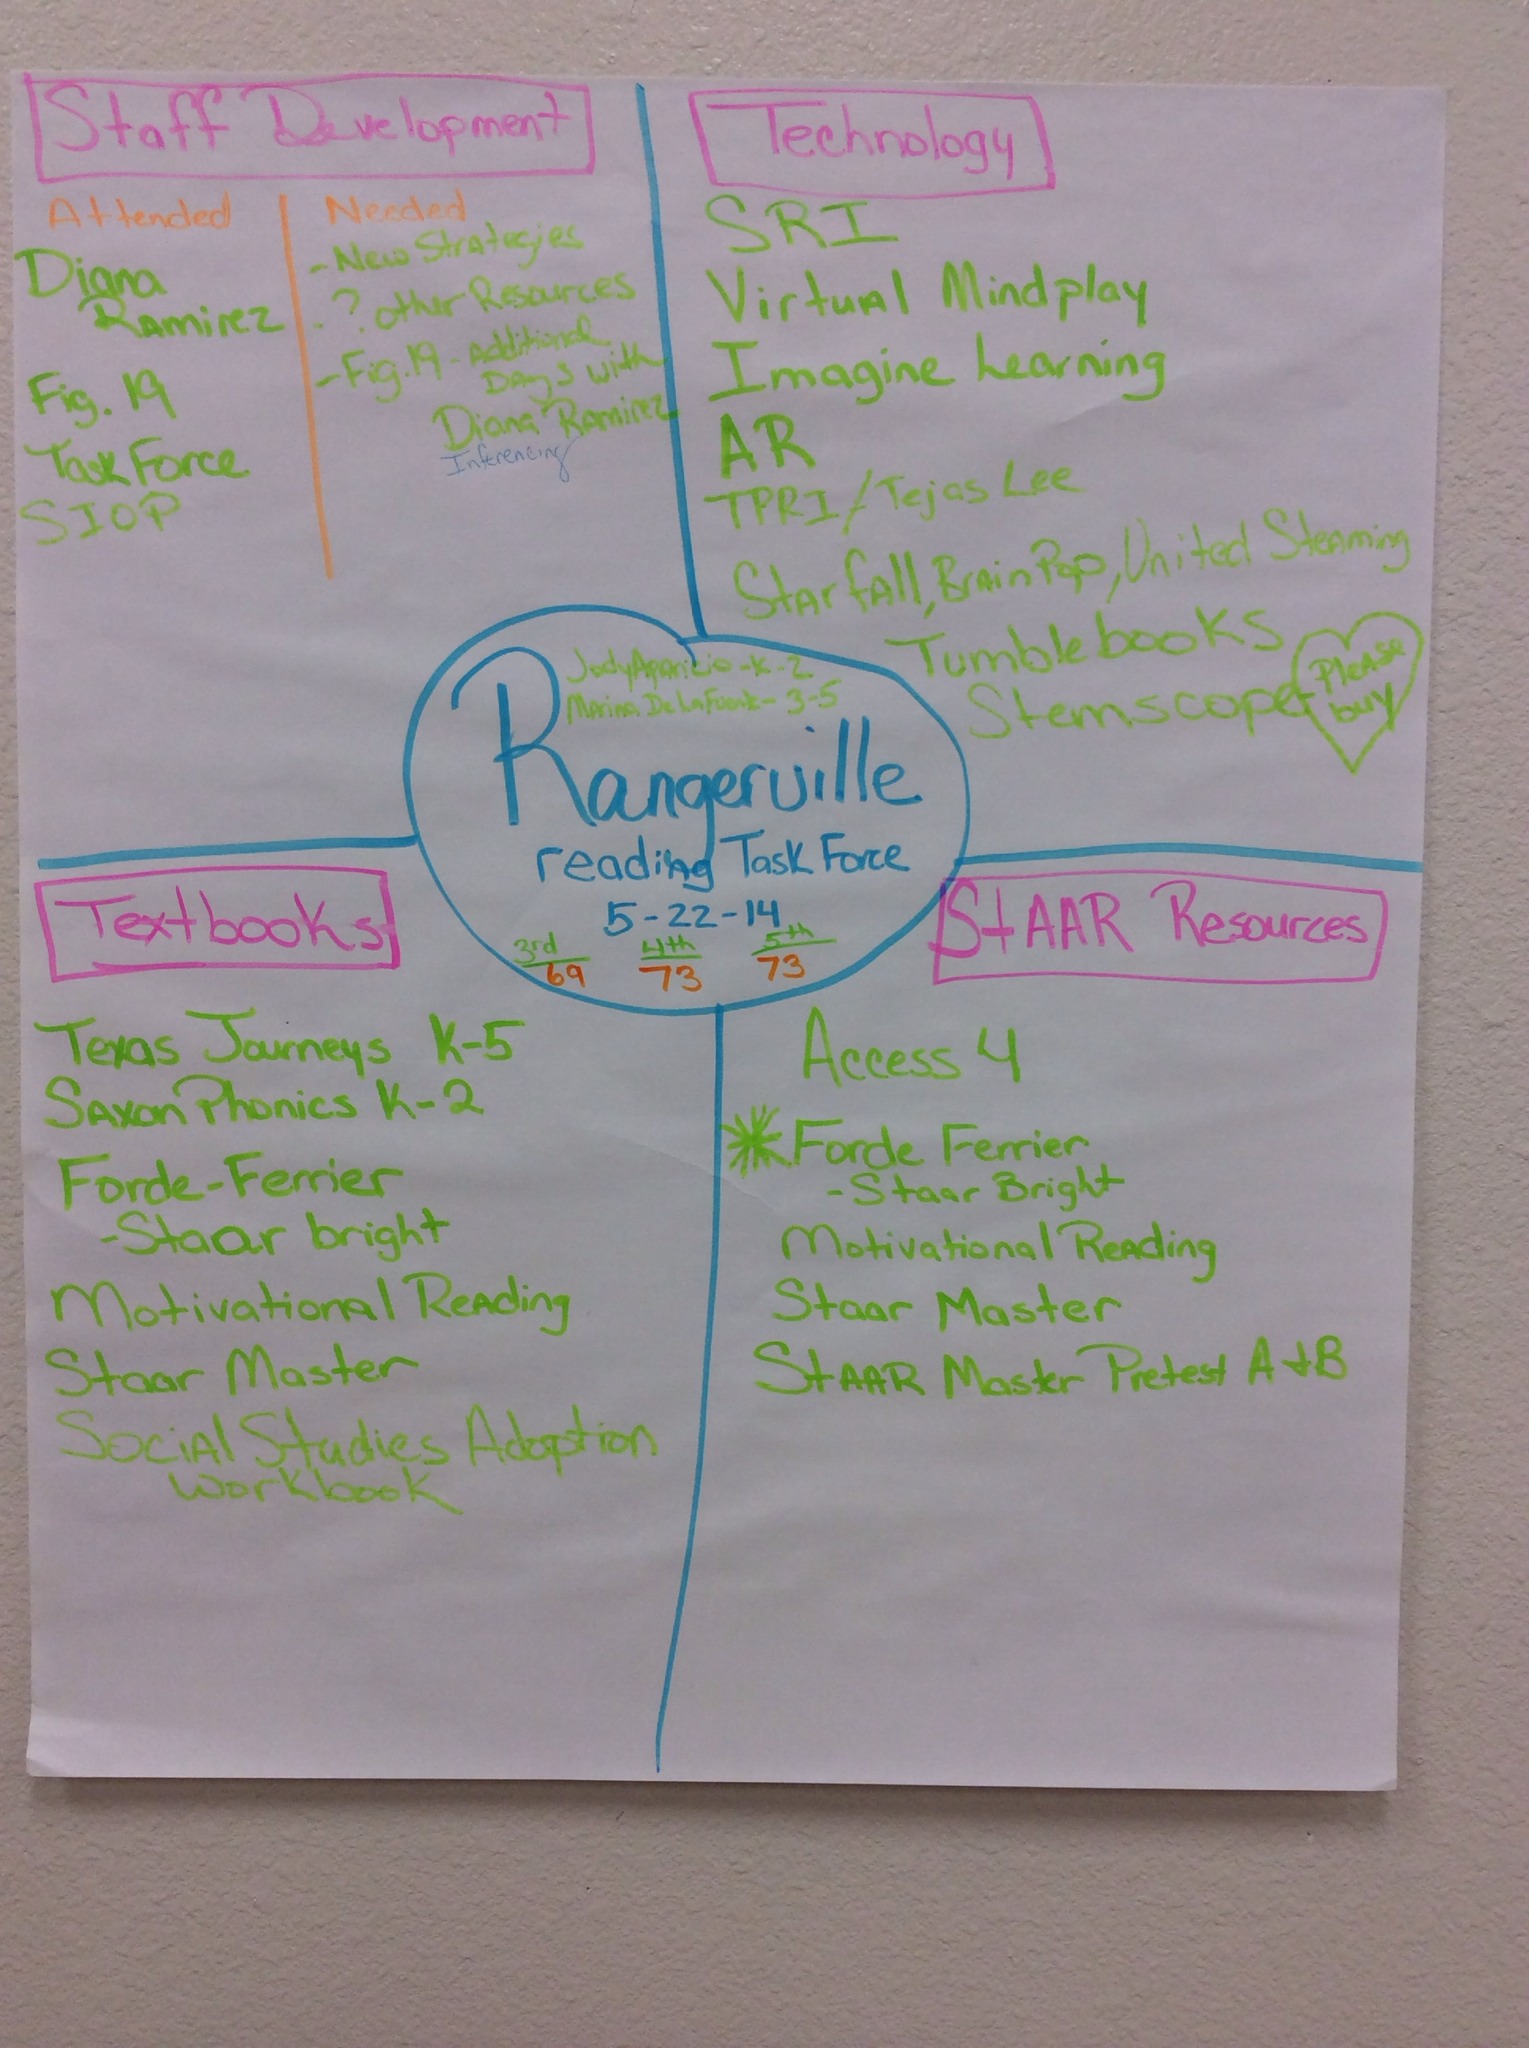 Staff Development
Attended
Diana
Ramirez
Fig. 19
Task Force
SIOP
Needed
- New Strategies
. ? other Resources
- Fig. 19 - Additional
Days with
Diana Ramirez
Inferencing
Technology
SRI
Virtual Mindplay
Imagine Learning
AR
TPRI/Tejas Lee
Starfall, BrainPop, United Steaming
Tumblebooks
Stemscope
Please
buy
Jody Aparicio - K-2
Marina De La Fuente - 3-5
Rangerville
reading Task Force
5-22-14
3rd 4th 5th
69 73 73
Textbooks
Texas Journeys K-5
Saxon Phonics K-2
Forde-Ferrier
- Staar bright
Motivational Reading
Staar Master
Social Studies Adoption
Workbook
StAAR Resources
Access 4
Forde Ferrier
- Staar Bright
Motivational Reading
Staar Master
StAAR Master Pretest A+B